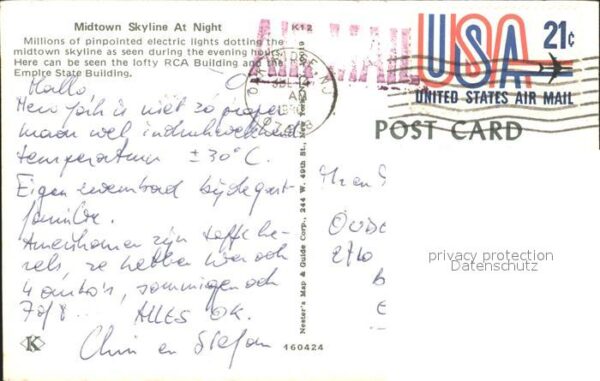 Midtown Skyline At Night
Millions of pinpointed electric lights dotting the
midtown skyline as seen during the evening hours.
Here can be seen the lofty RCA Building and the
Empire State Building.
K12
AIR MAIL
USA 21c
UNITED STATES AIR MAIL
POST CARD
Hallo
New York is niet zo proper
maar wel indrukwekkend
temperatuur ± 30°C.
Eigen zwembad bij de gast-
familie.
Amerikanen zijn toffe ke-
rels, ze hebben hier ook
4 auto's, sommigen ook
7 of 8 ... ALLES OK.
en Stefan
Nester's Map & Guide Corp., 244 W. 49th St., New York, N.Y. 10019
160424
K
OUDE
2710
privacy protection
Datenschutz